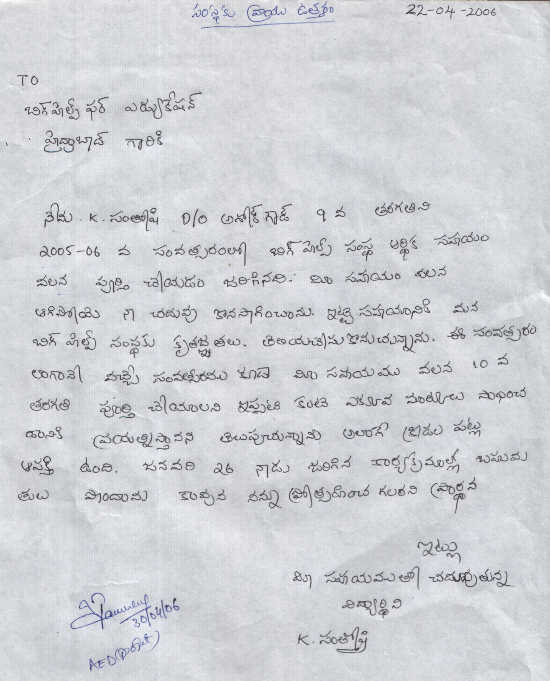 సంస్థకు వ్రాయు ఉత్తరం 22-04-2006
TO
బిగ్ హెల్ప్ ఫర్ ఎడ్యుకేషన్
హైద్రాబాద్ గారికి
నేను. K. సంతోషి D/O అశోక్ గౌడ్ 9 వ తరగతిని
2005-06 వ సంవత్సరంలో బిగ్ హెల్ప్ సంస్థ ఆర్థిక సహాయం
వలన పూర్తి చేయడం జరిగినది. మీ సహాయం వలన
ఆగిపోయి నా చదువు కొనసాగించాను. ఇట్టి సహాయానికి మన
బిగ్ హెల్ప్ సంస్థకు కృతజ్ఞతలు. తెలియచేసుకొనుచున్నాను. ఈ సంవత్సరం
లాగానే వచ్చే సంవత్సరము కూడా మీ సహాయము వలన 10 వ
తరగతి పూర్తి చేయాలని ఇప్పటి కంటె ఎక్కువ మార్కులు సాధించ
డానికి ప్రయత్నిస్తానని తెలుపుచున్నాను అలాగే క్రీడల పట్ల
ఆసక్తి ఉంది. జనవరి 26 నాడు జరిగిన కార్యక్రమాల్లో బహుమ
తులు పొందాను కావున నన్ను ప్రోత్సహించ గలరని ప్రార్థన
ఇట్లు
మీ సహాయముతో చదువుతున్న
విద్యార్థిని
K. సంతోషి
30/04/06